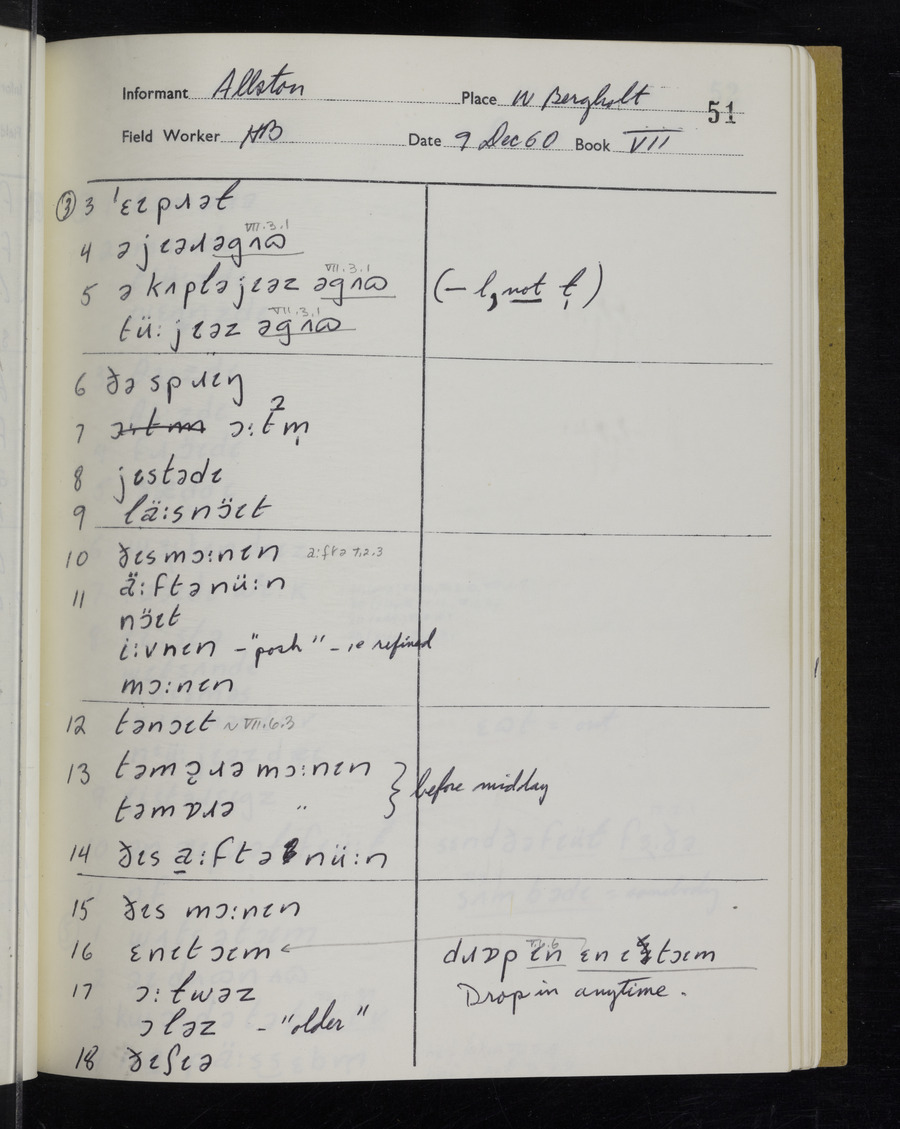 Informant Allston Place W Bergholt 51
Field Worker HB Date 9 Dec 60 Book VII
③ 3 ˈɛɪpɹəɫ
VII.3.1
4 ə jɪəɹ əgʌɷ
VII.3.1
5 ə kʌpɫə jɪəz əgʌɷ (– l, not ɫ̩)
VII.3.1
tü: jɪəz əgʌɷ
6 ðə spɹɪŋ
7 ɔ:tm̩
8 jɪstədɪ
9 lä:s nɔ̈ɪt
10 ðɪs mɔ:nɪn a:ftə 7,2,3
11 ä:ftənü:n
nɔ̈ɪt
i:vnɪn – "posh" – ie refined
mɔ:nɪn
12 tənɔɪt ~ VII.6.3
13 təmɒ̜ɹə mɔ:nɪn } before midday
təmɒɹə "
14 ðɪs a̠:ftənü:n
15 ðɪs mɔ:nɪn
16 ɛnɪtɔɪm dɹɒp ɪn ɛnɪtɔɪm
17 ɔ:ɫwəz Drop in anytime.
ɔləz – "older"
18 ðɪʃɪə